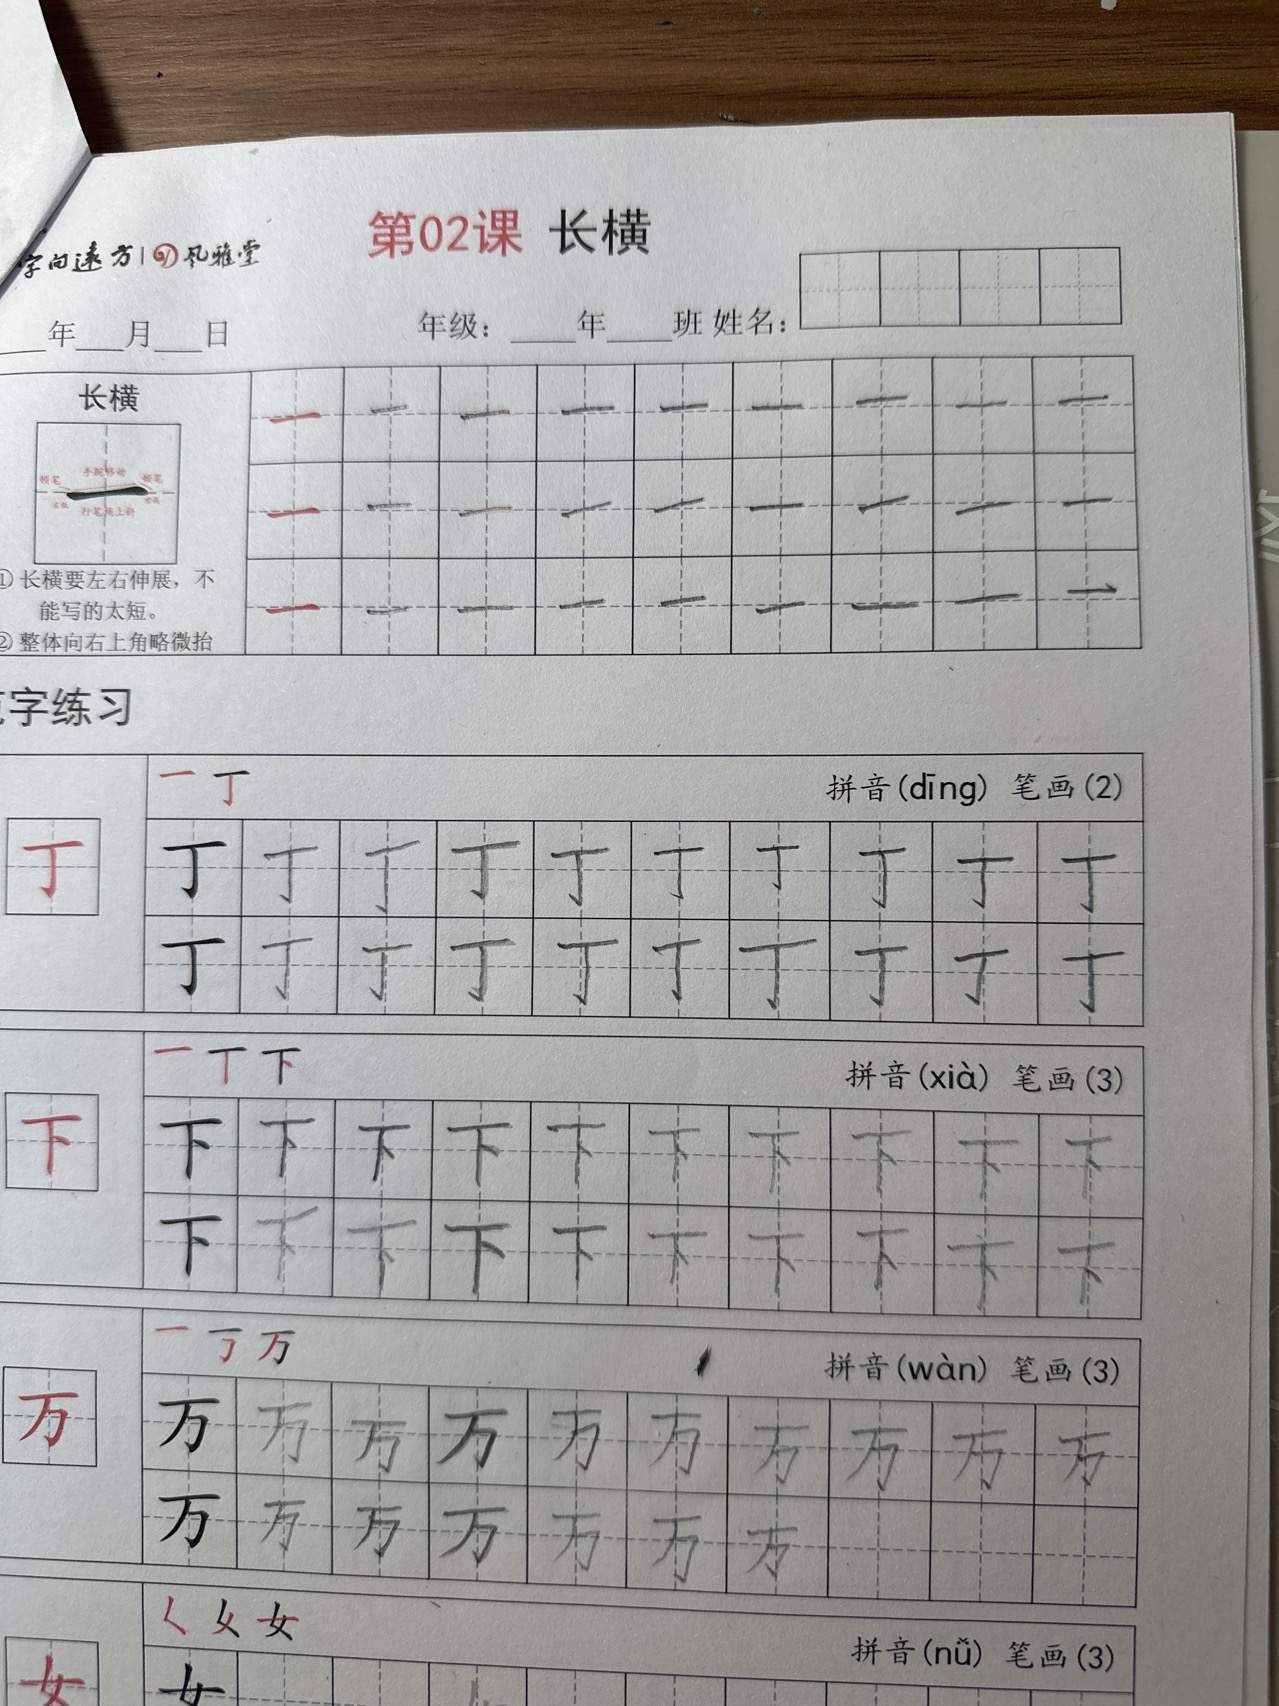 字向远方 | 风雅堂
第02课 长横
年 月 日
年级: 年 班 姓名:
长横
顿笔 手腕移动 顿笔
行笔向上斜
一 一 一 一 一 一 一 一 一
一 一 一 一 一 一 一 一 一
一 一 一 一 一 一 一 一 一
① 长横要左右伸展，不
能写的太短。
② 整体向右上角略微抬
字练习
一 丁
拼音(dīng) 笔画(2)
丁
丁 丁 丁 丁 丁 丁 丁 丁 丁 丁
丁 丁 丁 丁 丁 丁 丁 丁 丁 丁
一 丅 下
拼音(xià) 笔画(3)
下
下 下 下 下 下 下 下 下 下 下
下 下 下 下 下 下 下 下 下 下
一 丂 万
拼音(wàn) 笔画(3)
万
万 万 万 万 万 万 万 万 万 万
万 万 万 万 万 万 万
𡿨 女 女
拼音(nǚ) 笔画(3)
女
女